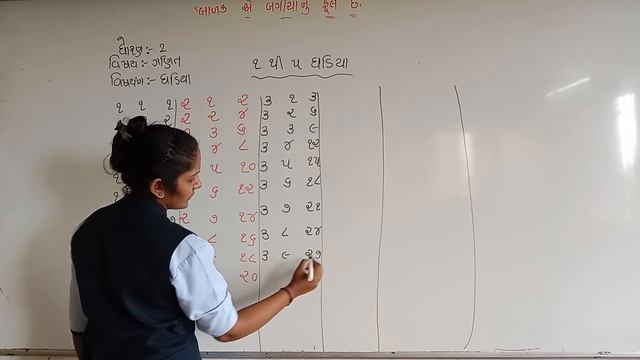 બાળક એ બગીચાનું ફૂલ છે.
ધોરણ:- 2
વિષય:- ગણિત
વિષયાંગ:- ઘડિયા
૧ થી ૫ ઘડિયા
૧ ૧ ૧ ૨ ૧ ૨ ૩ ૧ ૩
૨ ૨ ૨ ૪ ૩ ૨ ૬
૩ ૬ ૩ ૩ ૯
૪ ૮ ૩ ૪ ૧૨
૫ ૧૦ ૩ ૫ ૧૫
૬ ૧૨ ૩ ૬ ૧૮
૨ ૭ ૧૪ ૩ ૭ ૨૧
૮ ૧૬ ૩ ૮ ૨૪
૯ ૧૮ ૩ ૯ ૨૭
૨૦